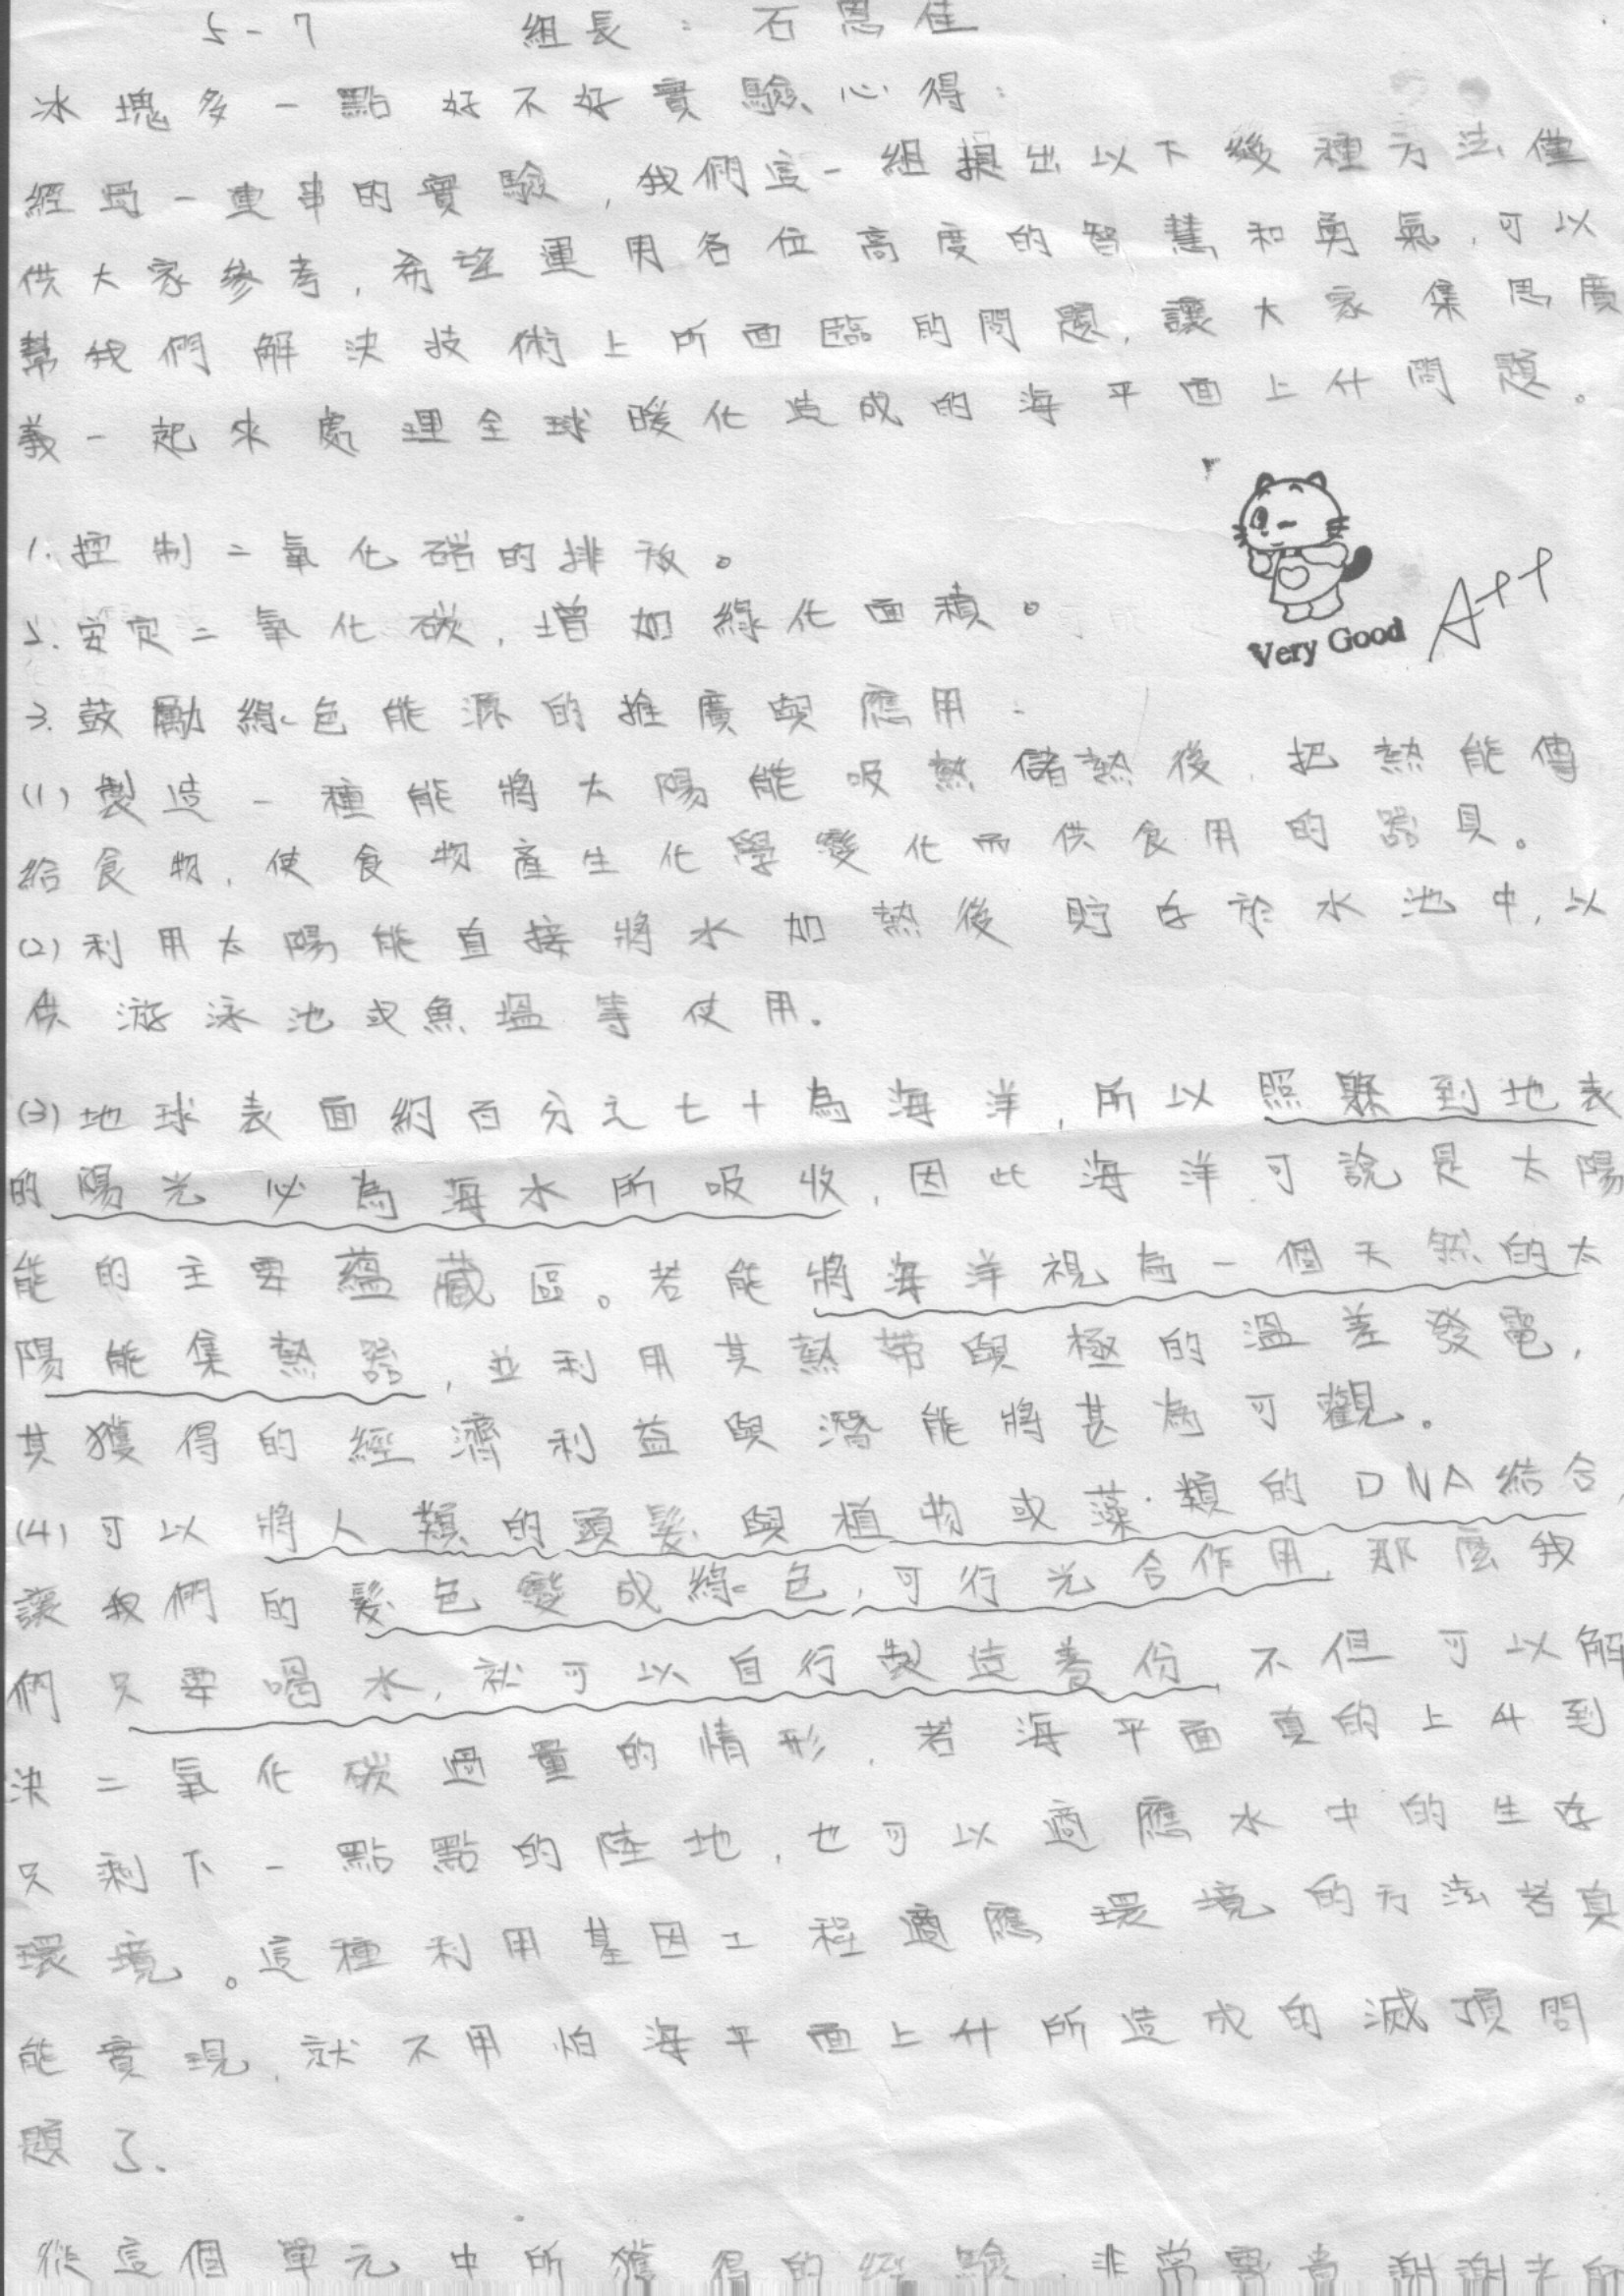 5-7 組長：石恩佳
冰塊多一點好不好實驗心得：
經過一連串的實驗，我們這一組提出以下幾種方法僅
供大家參考，希望運用各位高度的智慧和勇氣，可以
幫我們解決技術上所面臨的問題，讓大家集思廣
義一起來處理全球暖化造成的海平面上升問題。
1.控制二氧化碳的排放。
2.安定二氧化碳，增加綠化面積。
Very Good A++
3.鼓勵綠色能源的推廣與應用.
(1)製造一種能將太陽能吸熱儲熱後，把熱能傳
給食物，使食物產生化學變化而供食用的器具。
(2)利用太陽能直接將水加熱後貯存於水池中，以
供游泳池或魚塭等使用.
(3)地球表面約百分之七十為海洋，所以照射到地表
的陽光必為海水所吸收，因此海洋可說是太陽
能的主要蘊藏區。若能將海洋視為一個天然的太
陽能集熱器，並利用其熱帶與極的溫差發電，
其獲得的經濟利益與潛能將甚為可觀。
(4)可以將人類的頭髮與植物或藻類的DNA結合，
讓我們的髮色變成綠色，可行光合作用，那麼我
們只要喝水，就可以自行製造養份，不但可以解
決二氧化碳過量的情形，若海平面真的上升到
只剩下一點點的陸地，也可以適應水中的生存
環境。這種利用基因工程適應環境的方法若真
能實現，就不用怕海平面上升所造成的滅頂問
題了.
從這個單元中所獲得的經驗，非常寶貴，謝謝老師